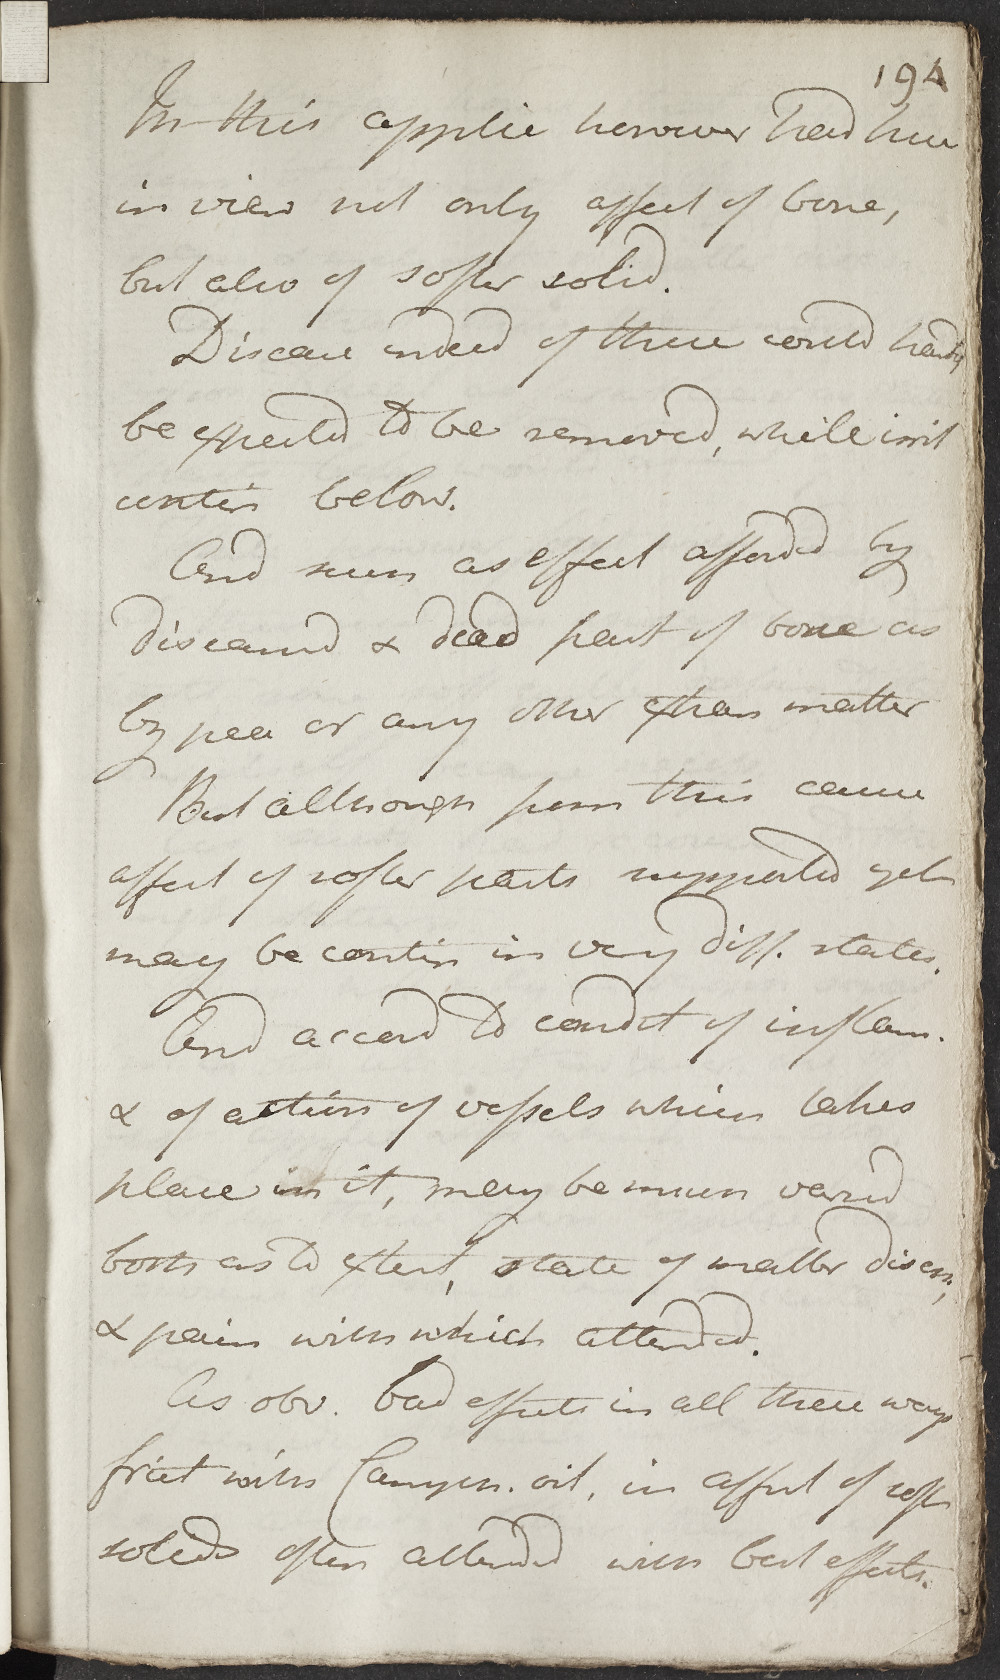 194
In this applic however had here
in view not only affect of bone,
but also of softer solid.
Disease indeed of these could hardly
be expected to be removed, while irrit
contin below.
And much as effect afforded by
diseased & dead part of bone as
by pea or any other extran matter
But although from this cause
affect of softer parts supported yet
may be contin in very diff. states.
And accord to condit of inflam.
& of action of vessels which takes
place in it, may be much varied
both as to extent, state of matter disch,
& pain with which attended.
As obv. bad effects in all these ways
frict with oil, in affect of soft
solids often attended with best effects.